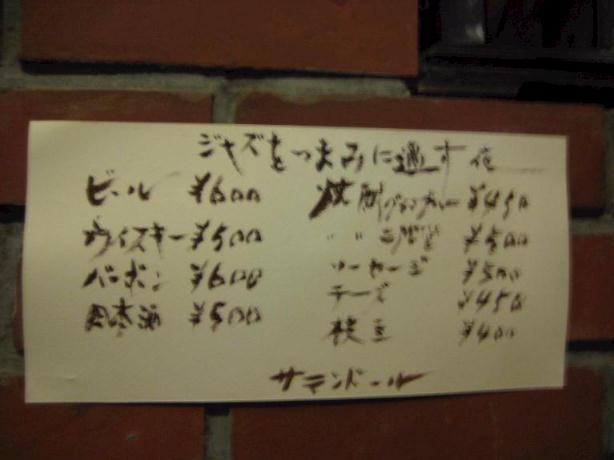 ジャズをつまみに過す夜
ビール ¥600
ウイスキー ¥500
バーボン ¥600
日本酒 ¥500
焼酎 ¥450
〃 〃 ¥500
ソーセージ ¥500
チーズ ¥450
枝豆 ¥400
サマンドール